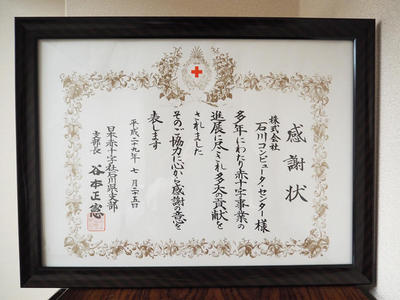 感謝状
株式会社
石川コンピュータ・センター様
多年にわたり赤十字事業の
進展に尽され多大の貢献を
されました
そのご協力に心から感謝の意を
表します
平成二十九年 七月二十五日
日本赤十字社石川県支部
支部長 谷本正憲